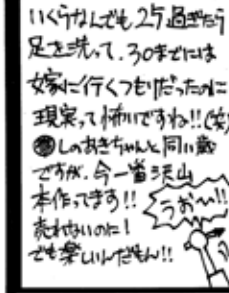 いくらなんでも25過ぎたら
足を洗って、30までには
嫁に行くつもりだったのに
現実って怖いですね!!(笑)
しのあきちゃんと同い歳
ですが、今一番沢山
本作ってます!!
売れないのに!
でも楽しいんだもん!!
うお〜!!